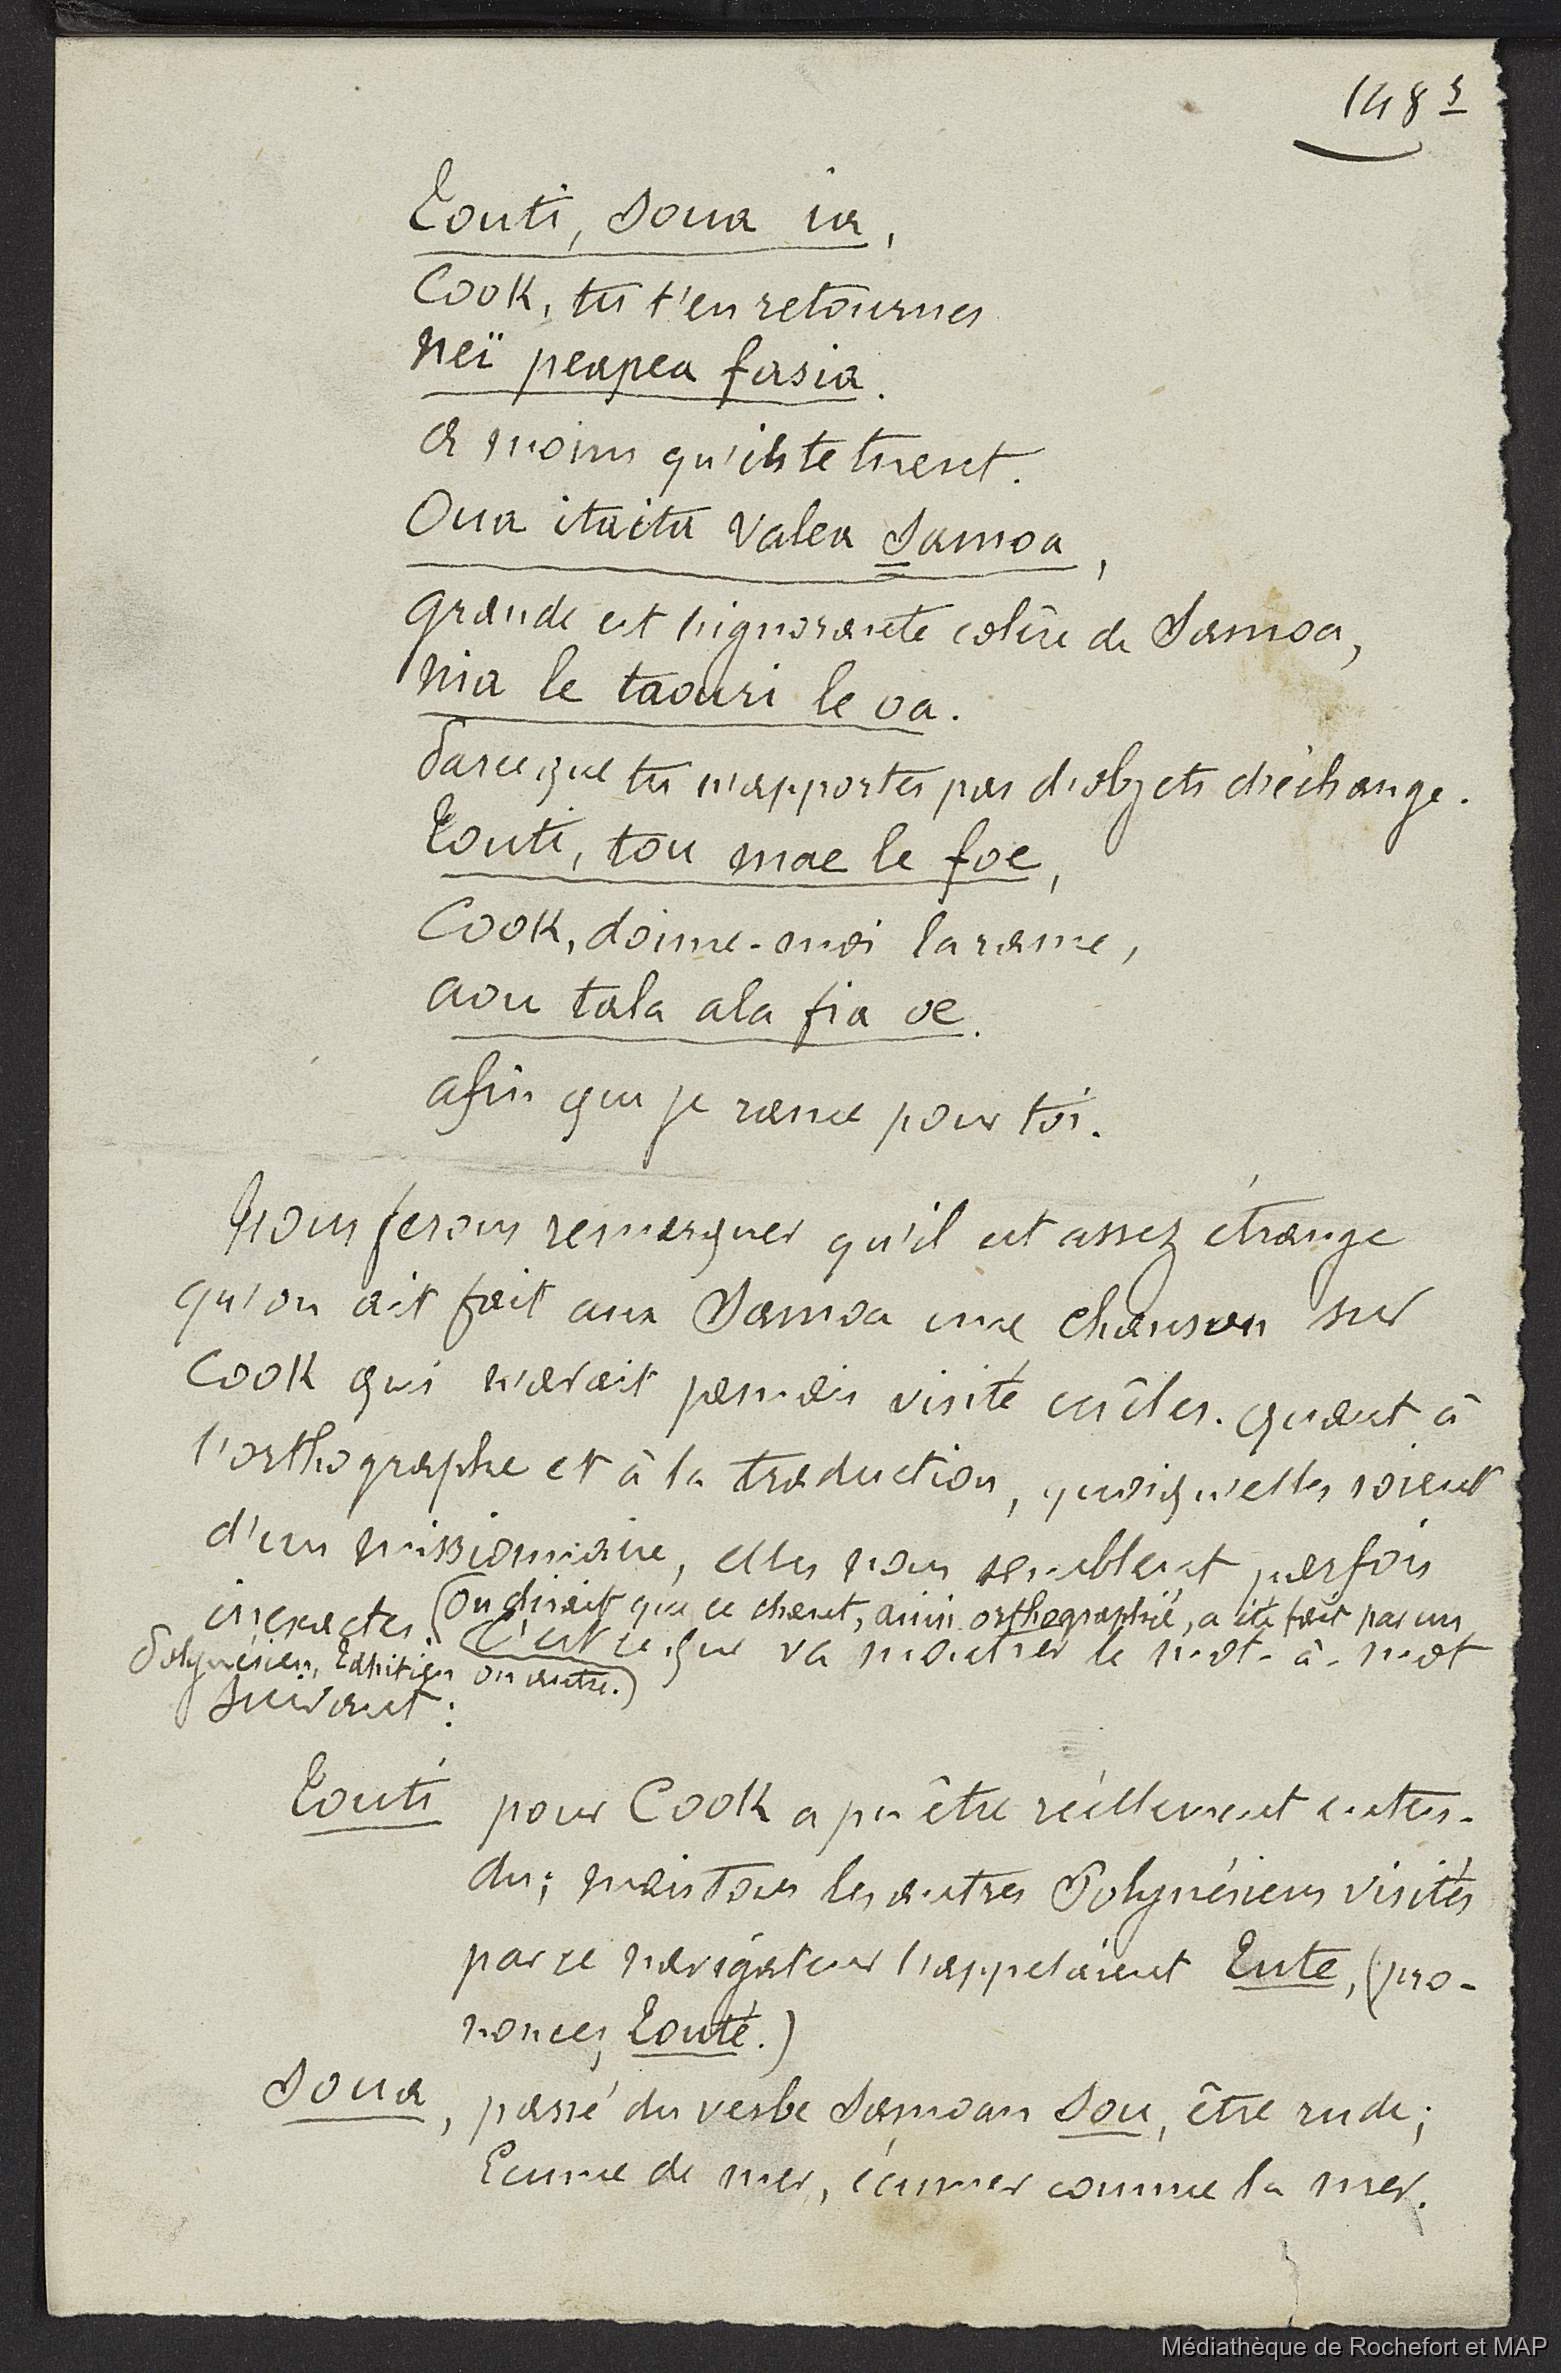 148 5
Touti, Soua ia,
Cook, tu t'en retournes
neï peapea fasia.
à moins qu'ils te tuent.
Oua itaita valea Samoa,
grande est l'ignorante colère de Samoa,
nia le taouri le oa.
Parceque tu n'apportes pas d'objets d'échange.
Touti, tou mae le foe,
Cook, donne-moi la rame,
aou tala ala fia oe.
afin que je rame pour toi.
Nous ferons remarquer qu'il est assez étrange
qu'on ait fait aux Samoa une chanson sur
Cook qui n'avait jamais visité ces îles. Quant à
l'orthographe et à la traduction, quoiqu'elles soient
d'un missionnaire, elles nous semblent parfois
inexactes. (On dirait que ce chant, ainsi orthographié, a été fait par un
Polynésien, Tahitien ou autre.)
C'est ce que va montrer le mot-à-mot
suivant :
Touti pour Cook a pu être réellement enten-
du; mais tous les autres Polynésiens visités
par ce navigateur l'appelaient Tute, (pro-
noncez Touté.)
Soua, passé du verbe Samoan Sou, être rude;
Ecume de mer, écumer comme la mer.
Médiathèque de Rochefort et MAP